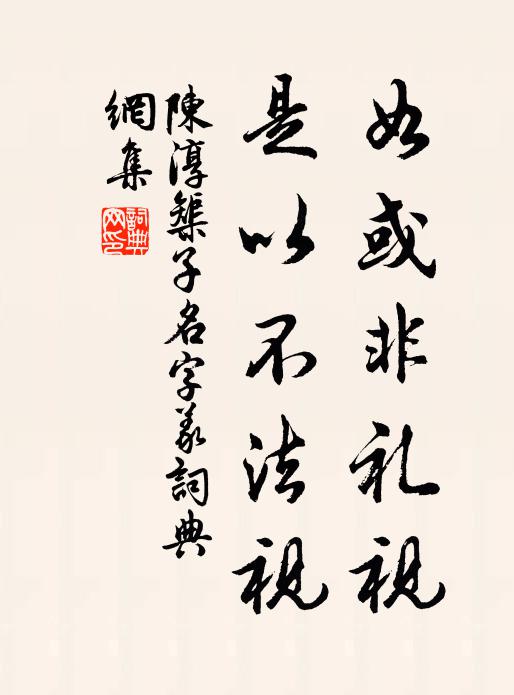 如或非礼視
是以不法視
陳淳榘子名字義詞典
網集
詞典
网印